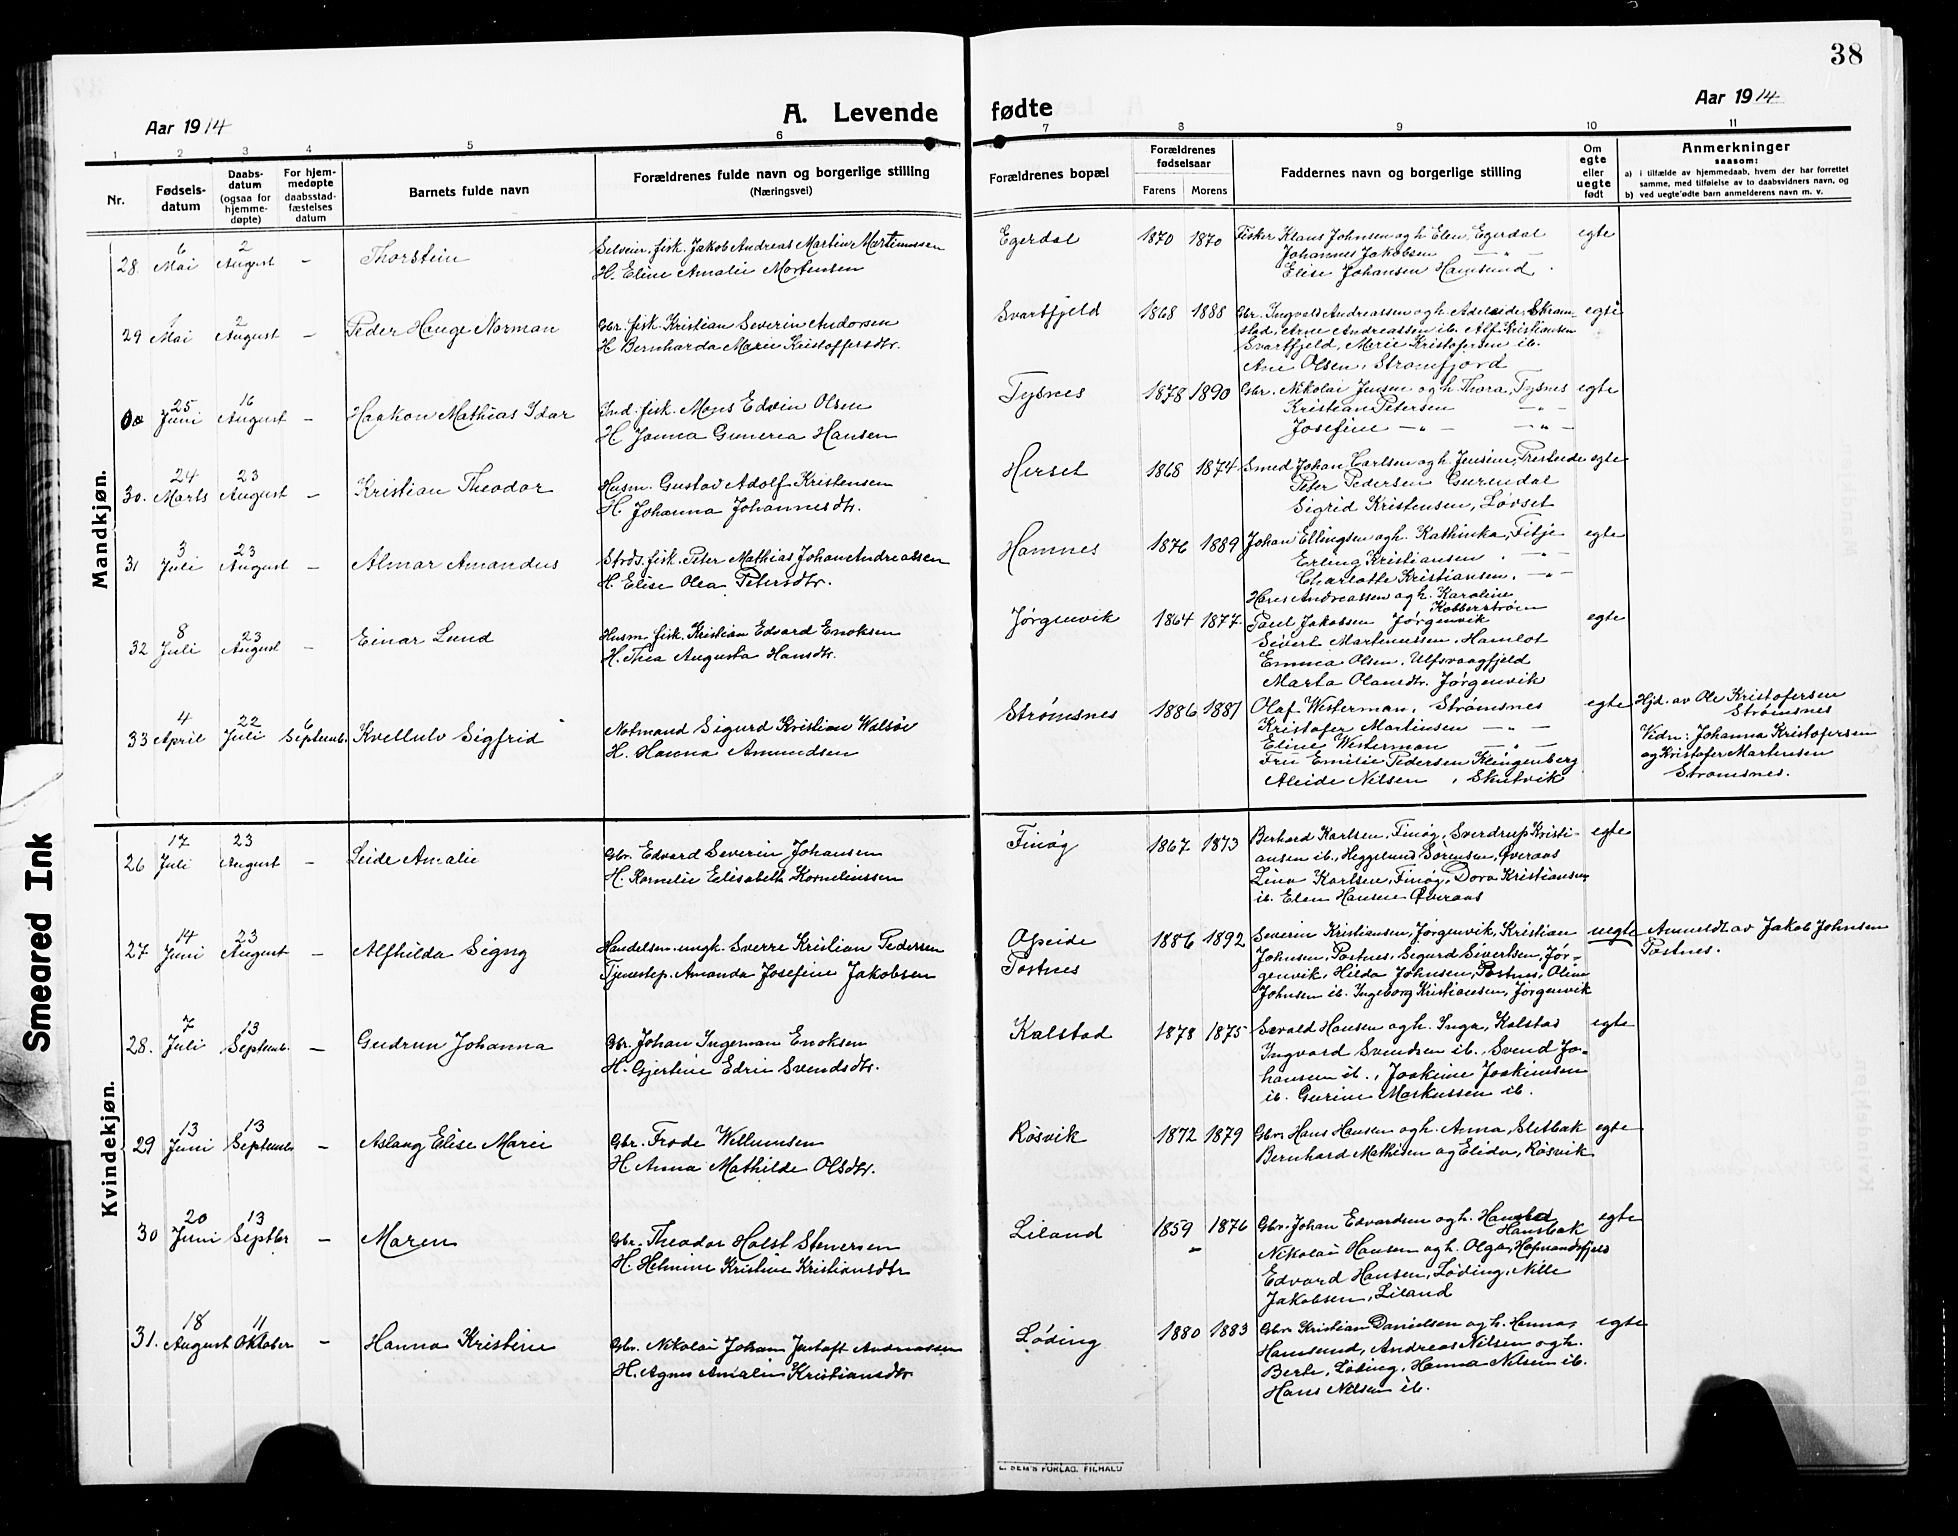 38
A. Levende fødte
Aar 1914
Aar 1914
1 2 3 4 5 6 7 8 9 10 11
Nr.
Fødsels-
datum
Daabs-
datum
(ogsaa for
hjemme-
døpte)
For hjem-
medøpte
daabsstad-
fæstelses
datum
Barnets fulde navn
Forældrenes fulde navn og borgerlige stilling
(Næringsvei)
Forældrenes bopæl
Forældrenes
fødselsaar
Farens Morens
Faddernes navn og borgerlige stilling
Om
egte
eller
uegte
født
Anmerkninger
saasom:
a) i tilfælde av hjemmedaab, hvem der har forrettet
samme, med tilføielse av to daabsvidners navn, og
b) ved uegte fødte barn anmelderens navn m. v.
Mandkjøn.
28. 6 Mai 2 August – Thorstein
Selveier fisk. Jakob Andreas Martin Martinussen
H. Eline Amalie Mortensen
Egerdal 1870 1870
Fisker Klaus Johnsen og h. Elen, Egerdal egte
Johannes Jakobsen — " —
Elise Johansen Hamsund.
29 1 Mai 2 August – Peder Hauge Norman
Gbr. fisk. Kristian Severin Andorsen
H Bernharda Marie Kristoffersdtr.
Svartfjeld 1868 1888
Gbr. Ingvald Andreassen og h. Adelaide, Skram- egte
stad, Arne Andreassen ib. Alf Kristiansen
Svartfjeld, Marie Kristofersen ib.
Ane Olsen, Stromfjord
25 Juni 16 August – Haakon Mathias Idar
Ind. fisk. Mons Edvin Olsen
H Janna Gunerea Hansen
Tysnes 1878 1890
Gbr. Nikolai Jensen og h. Thora, Tysnes egte
Kristian Petersen — " —
Josefine — " — — " —
30. 24 Marts 23 August – Kristian Theodor
Husm. Gustav Adolf Kristensen
H. Johanna Johannesdtr.
Herset 1868 1874
Smed Johan Carlsen og h. Jensine, Presteide egte
Peter Pedersen Gurendal
Sigrid Kristensen, Løvset
31 3 Juli 23 August – Almar Amandus
Strds. fisk. Peter Mathias Johan Andreassen
H. Elise Olea Petersdtr.
Hamnes 1876 1889
Johan Ellingsen og h. Kathinka, Filje egte
Erling Kristiansen, — " —
Charlotte Kristiansen, — " —
Hans Andreassen og h. Karoline
Kobberstrøm
32 8 Juli 23 August – Einar Lund
Husm. fisk. Kristian Edvard Enoksen
H. Thea Augusta Hansdtr.
Jørgenvik 1864 1877
Paul Jakobsen Jørgenvik egte
Sivert Martinussen, Hamlot
Emma Olsen, Ulfsvaagfjeld
Marta Olausdtr. Jørgenvik
33 4 April 22 Juli 6 Septemb. Kvellulv Sigfrid
Notmand Sigurd Kristian Walsøe
H. Hanna Amundsen
Strømsnes 1886 1881
Olaf Westerman, Strømsnes egte
Kristofer Martinsen — " —
Eline Westerman — " —
Fru Emilie Pedersen Klingenberg
Aleide Nilsen, Skutvik
Hjd. av Ole Kristofersen
Strømsnes
Vidn: Johanna Kristofersen
og Kristofer Martensen
Strømsnes.
Kvindekjøn.
26 17 Juli 23 August – Leide Amalie
Gbr. Edvard Severin Johansen
H. Kornelie Elisabeth Korneliussen
Finøg 1867 1873
Berhard Karlsen, Finøg, Sverdrup Kristi- egte
ansen ib., Heggelund Sørensen, Øveraas
Lina Karlsen, Finøg, Dora Kristiansen
ib. Elen Hansen Øveraas
27 14 Juni 23 August – Alfhilda Signy
Handelsm. ungk. Sverre Kristian Pedersen
Tjenestep. Amanda Josefine Jakobsen
Opeide
Postnes
1886 1892
Severin Kristiansen, Jørgenvik, Kristian uegte
Johnsen, Postnes, Segurd Sivertsen, Jør-
genvik, Hilda Johnsen, Postnes, Oline
Johnsen ib. Ingeborg Kristiansen, Jørgenvik
Anmeldt av Jakob Johnsen
Postnes.
28. 7 Juli 13 Septemb. – Gudrun Johanna
Gbr. Johan Ingeman Enoksen
H. Gjertine Edrie Svendsdtr.
Kalstad 1878 1875
Sevald Hansen og h. Inga, Kalstad egte
Ingvard Svendsen ib., Svend Jo-
hansen ib., Joakine Joakimsen
ib. Gurine Markussen ib.
29 13 Juni 13 Septemb. – Aslaug Elise Marie
Gbr. Frode Wellumsen
H. Anna Mathilde Olsdtr.
Røsvik 1872 1879
Gbr. Hans Hansen og h. Anna, Sletbak egte
Bernhard Mathisen og Elida, Røsvik
30 20 Juni 13 Septbr – Maren
Gbr. Theodor Holst Stenersen
H. Helmine Kristine Kristiansdtr
Liland 1859 1876
Gbr. Johan Edvardsen og h. Hansbak egte
Nikolai Hansen og h. Olga, Hopmandsfjeld
Edvard Hansen, Løding, Nille
Jakobsen, Liland
31. 18 August 11 Oktober – Hanna Kristine
Gbr. Nikolai Johan Jentoft Andreassen
H. Agnes Amalie Kristiansdtr
Løding 1880 1883
Gbr Kristian Danielsen og h. Hanna, egte
Hamsund, Andreas Nilsen og h.
Berte, Løding, Hanna Nilsen ib.
Hans Nilsen ib.
E. SEM'S FORLAG, FR.HALD
Smeared Ink